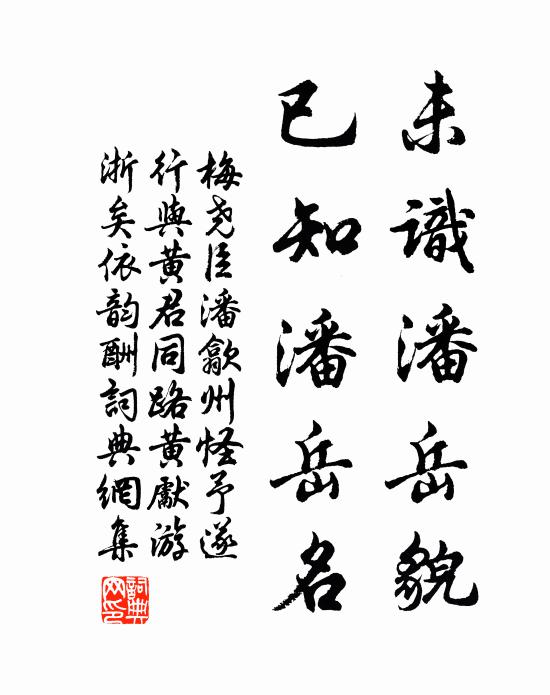 未識潘岳貌
已知潘岳名
梅堯臣潘歙州怪予遂
行與黃君同路黃獻游
浙矣依韵酬詞典網集